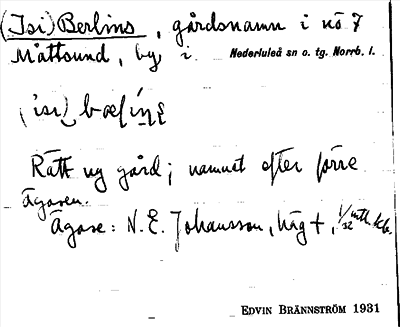 (Isi) Berlins, gårdsnamn i nö 7
Måttsund, by i Nederluleå sn o. tg. Norrb. l.
Rätt ny gård; namnet efter förre
ägaren.
Ägare: N. E. Johansson, häg †,
EDVIN BRÄNNSTRÖM 1931